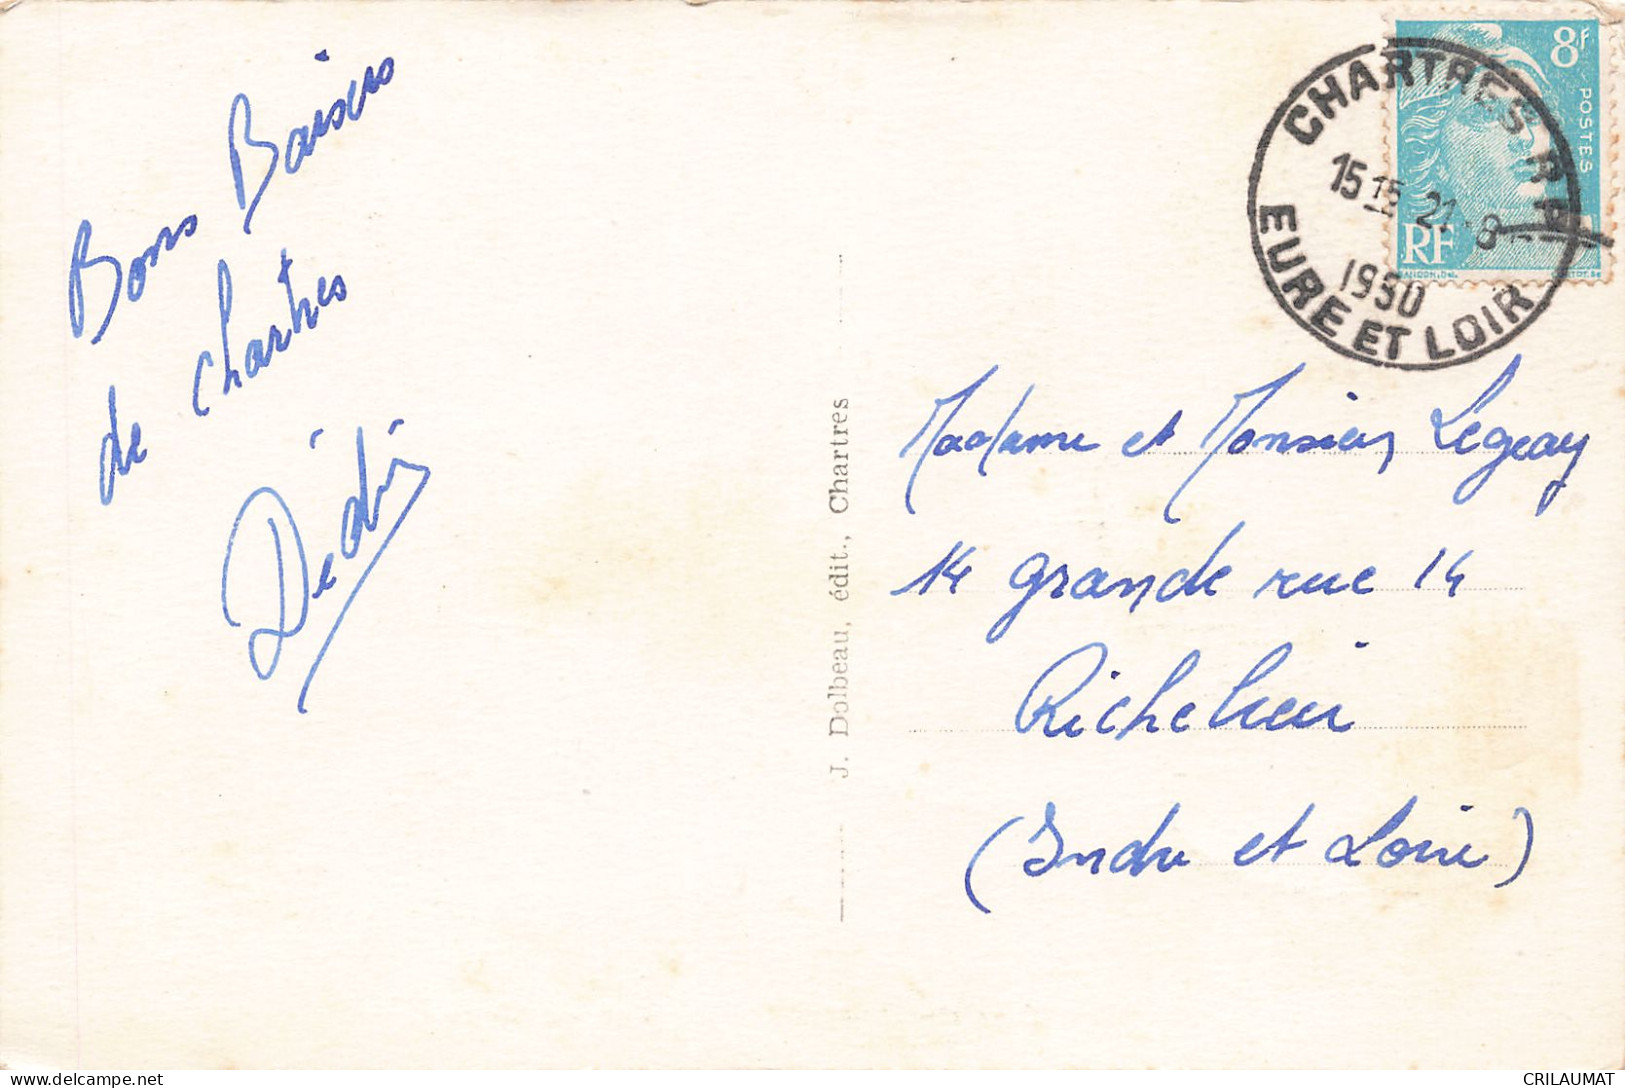 Bons Baisers
de Chartres
Dédé
J. Dolbeau, édit., Chartres
8F
POSTES
RF
CHARTRES R.P.
15 15 21 - 8
1950
EURE ET LOIR
Madame et Monsieur Légeay
14 grande rue 14
Richelieu
(Indre et Loire)
delcampe.net
CRILAUMAT